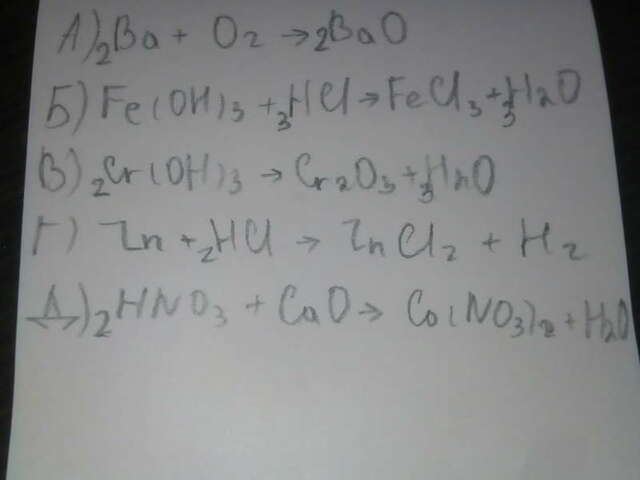 А) 2Ba + O2 → 2BaO
Б) Fe(OH)3 + 3HCl → FeCl3 + 3H2O
В) 2Cr(OH)3 → Cr2O3 + 3H2O
Г) Zn + 2HCl → ZnCl2 + H2
Д) 2HNO3 + CaO → Ca(NO3)2 + H2O